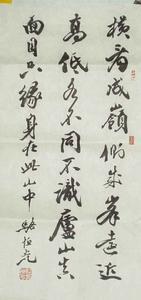 橫看成嶺側成峯遠近
高低各不同不識廬山真
面目只緣身在此山中